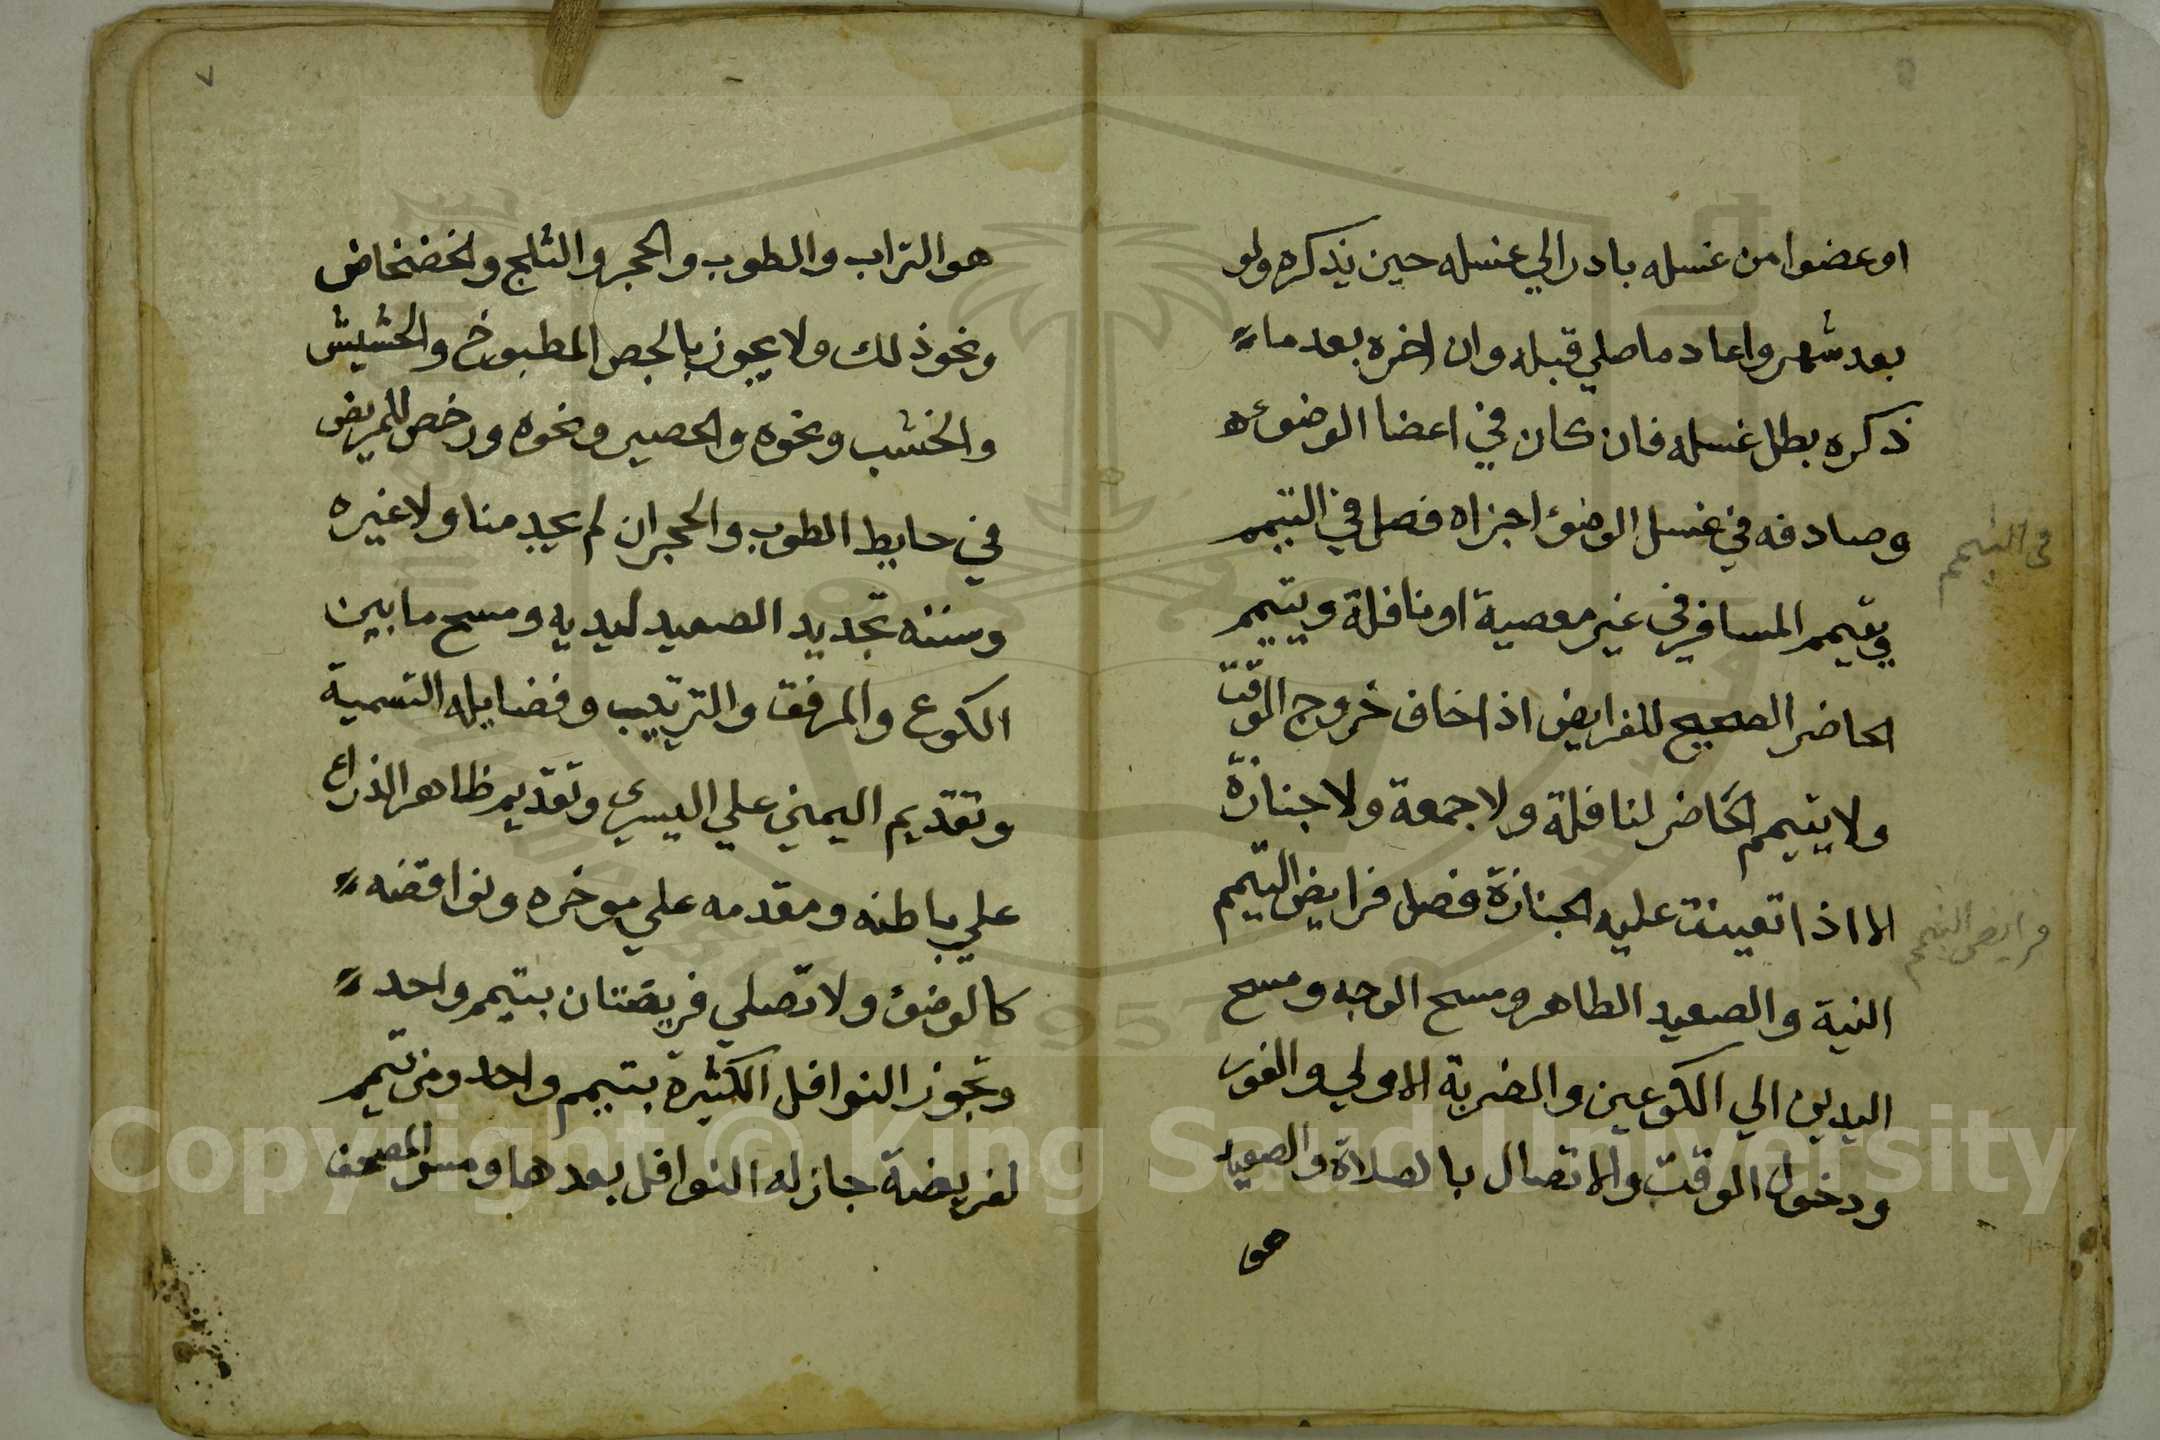 اوعضوا من غسله بادر الي غسله حين يذكره ولو
بعد شهر واعاد ما صلي قبله وان اخره بعد ما
ذكره بطل غسله فان كان في اعضا الوضوء
وصادفه في غسل الوضوء اجزاه فصل في التيمم
ويتيمم المسافر في غير معصية او نافلة ويتيمم
الحاضر الصحيح للفرايض اذا خاف خروج الوقت
ولا يتيمم الحاضر لنافلة ولا جمعة ولا جنازة
الا اذا تعينت عليه الجنازة فصل فرايض التيمم
النية والصعيد الطاهر ومسح الوجه ومسح
اليدين الي الكوعين والضربة الاولي والفور
ودخول الوقت والاتصال بالصلاة والصعيد
هو
في التيمم
فرايض التيمم
٧
هو التراب والطوب والحجر والثلج والخضخاض
ونحو ذلك ولا يجوز بالجص المطبوخ والحشيش
والخشب ونحوه والحصير ونحوه ورخص للمريض
في حايط الطوب والحجر ان لم يجد مناولا غيره
وسننه تجديد الصعيد ليديه ومسح ما بين
الكوع والمرفق والترتيب وفضايله التسمية
وتقديم اليمني علي اليسري وتقديم ظاهر الذراع
علي باطنه ومقدمه علي موخره ونواقضه
كالوضوء ولا تصلي فريضتان بتيمم واحد
وتجوز النوافل الكثيرة بتيمم واحد ومن تيمم
لفريضة جاز له النوافل بعدها ومس المصحف
Copyright © King Saud University
1957